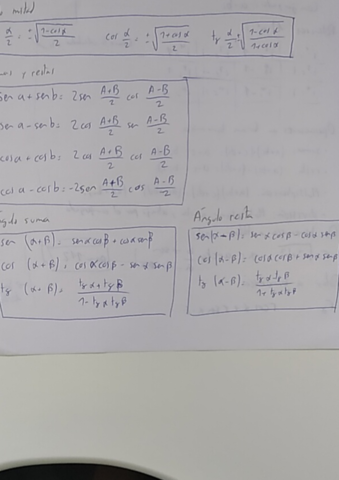 mitad
α/2 = ±√(1-cosα)/2 cos α/2 = ±√(1+cosα)/2 tg α/2 ±√(1-cosα)/(1+cosα)
y restas
sen a + sen b = 2 sen (A+B)/2 cos (A-B)/2
sen a - sen b = 2 cos (A+B)/2 sen (A-B)/2
cos a + cos b = 2 cos (A+B)/2 cos (A-B)/2
cos a - cos b = -2 sen (A+B)/2 cos (A-B)/2
suma Ángulo resta
sen (α+β) = senα cosβ + cosα senβ
cos (α+β) = cosα cosβ - senα senβ
tg (α+β) = (tg α + tg β)/(1 - tg α tg β)
sen (α-β) = senα cosβ - cosα senβ
cos (α-β) = cosα cosβ + senα senβ
tg (α-β) = (tg α - tg β)/(1 + tg α tg β)